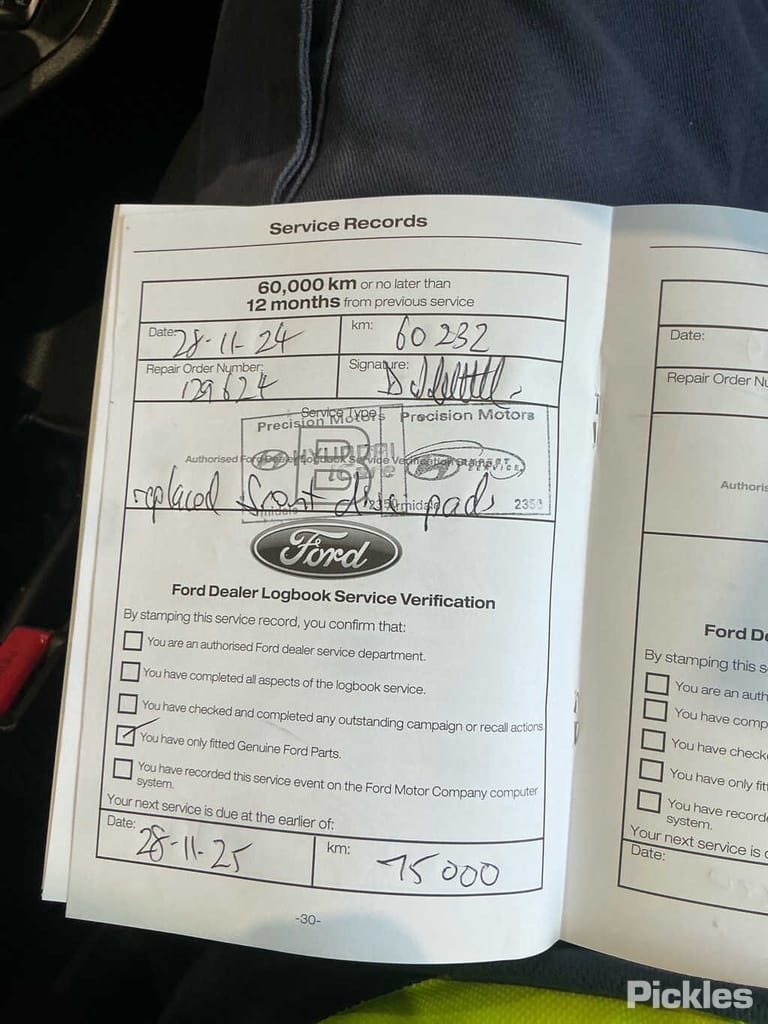 Service Records
60,000 km or no later than
12 months from previous service
Date: 28-11-24 km: 60 232
Repair Order Number: 129624 Signature:
Service Type
Precision Motors Precision Motors
Authorised Ford Dealer Logbook Service Verification Stamp
HYUNDAI
iCare
replaced front disc pads
2350 2350
Ford
Ford Dealer Logbook Service Verification
By stamping this service record, you confirm that:
You are an authorised Ford dealer service department.
You have completed all aspects of the logbook service.
You have checked and completed any outstanding campaign or recall actions
You have only fitted Genuine Ford Parts.
You have recorded this service event on the Ford Motor Company computer
system.
Your next service is due at the earlier of:
Date: 28-11-25 km: 75 000
-30-
Date:
Repair Order Nu
Authoris
Ford De
By stamping this s
You are an auth
You have comp
You have check
You have only fit
You have recorde
system.
Your next service is d
Date:
Pickles